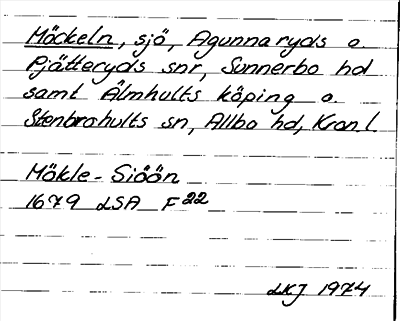 Möckeln, sjö, Agunnaryds o.
Pjätteryds snr, Sunnerbo hd
samt Älmhults köping o.
Stenbrohults sn, Allbo hd, Kron.l.
Mökle-Siöön
1679 LSA F22
LKJ 1974